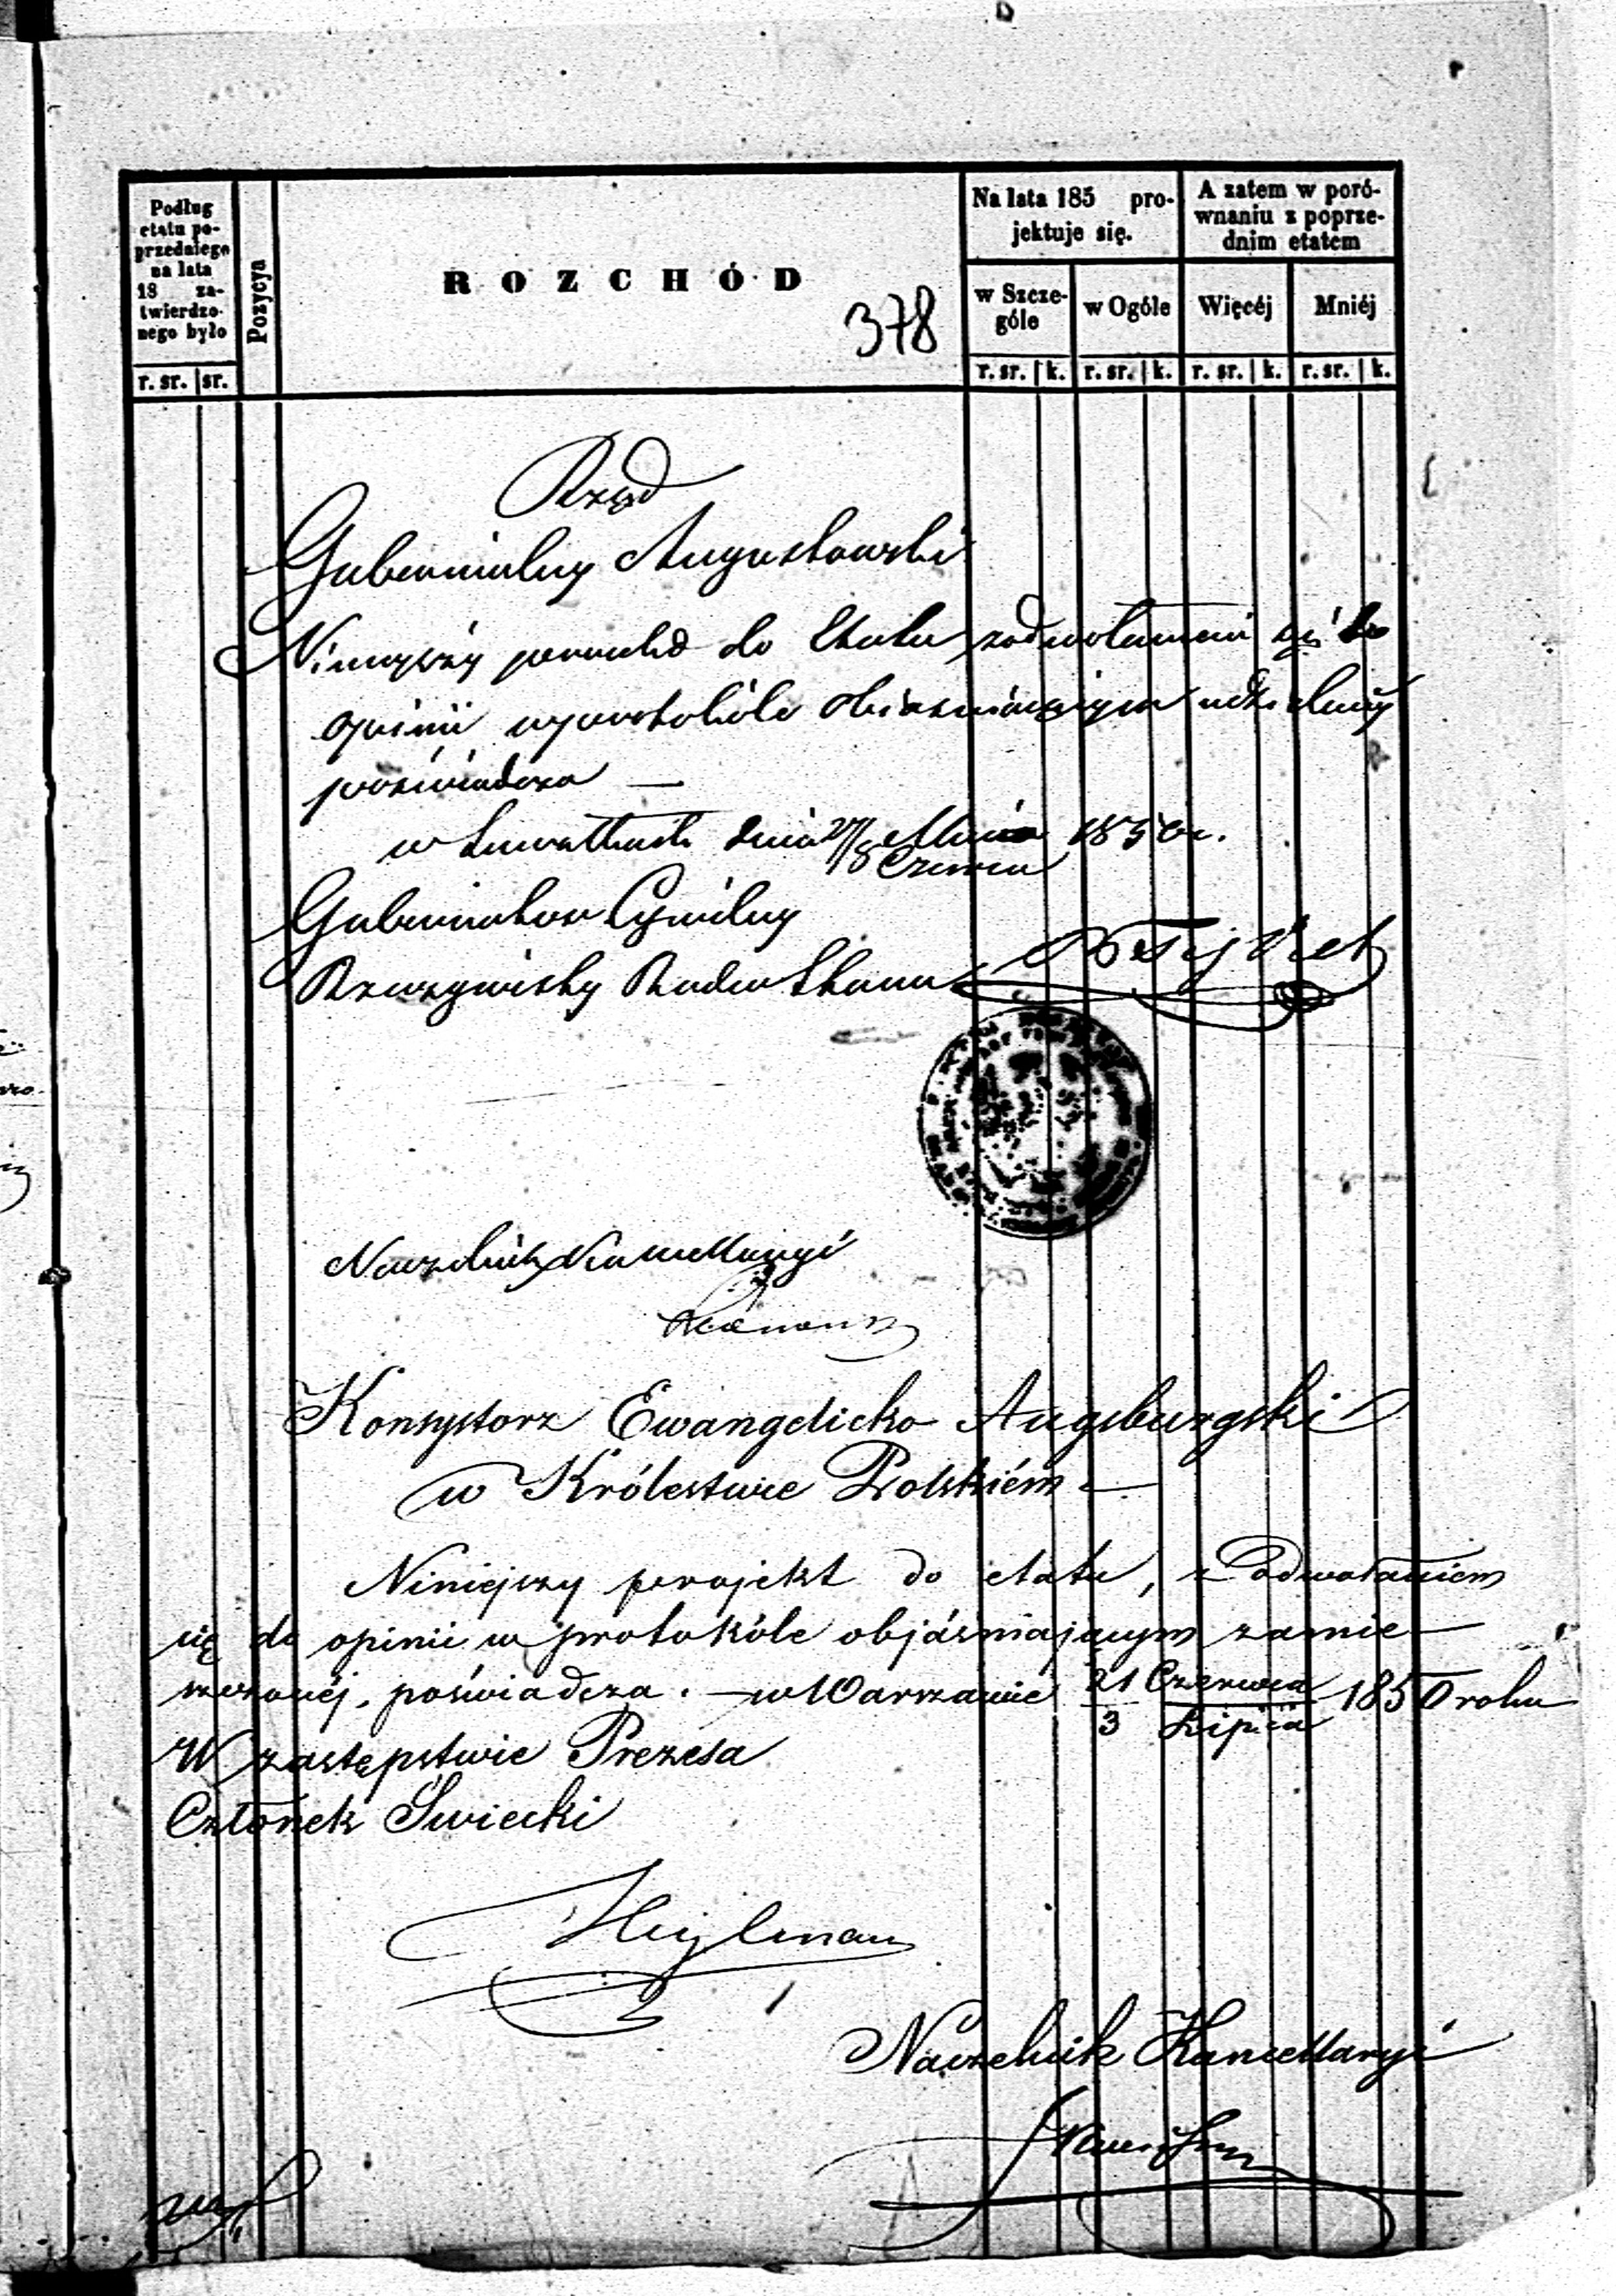 Podług
etatu po-
przedniego
na lata
18 za-
twierdzo-
nego było
r. sr. sr.
Pozycya
ROZCHÓD
378
Na lata 185 pro-
jektuje się.
w Szcze-
góle
w Ogóle
r. sr. k. r. sr. k.
A zatem w poró-
wnaniu z poprze-
dnim etatem
Więcéj
Mniéj
r. sr. k. r. sr. k.
Rząd
Gubernialny Augustowski
Niniejszy do Etatu z odwołaniem się do
opinii w protokóle objaśniającym udzielonéj
poświadcza —
w Suwałkach dnia 27/8 Maja/Czerwca 1850 r.
Gubernator Cywilny
Rzeczywisty Radca Stanu
Naczelnik Kancellaryi
Konsystorz Ewangelicko Augsburgski
w Królestwie Polskiém —
Niniejszy projekt do etatu, z odwołaniem
się do opinii w protokóle objáśniającym zamie-
szczonéj, poświadcza. — w Warszawie 21 Czerwca/3 Lipca 1850 roku
W zastępstwie Prezesa
Członek Świecki
Hejlman
Naczelnik Kancellaryi